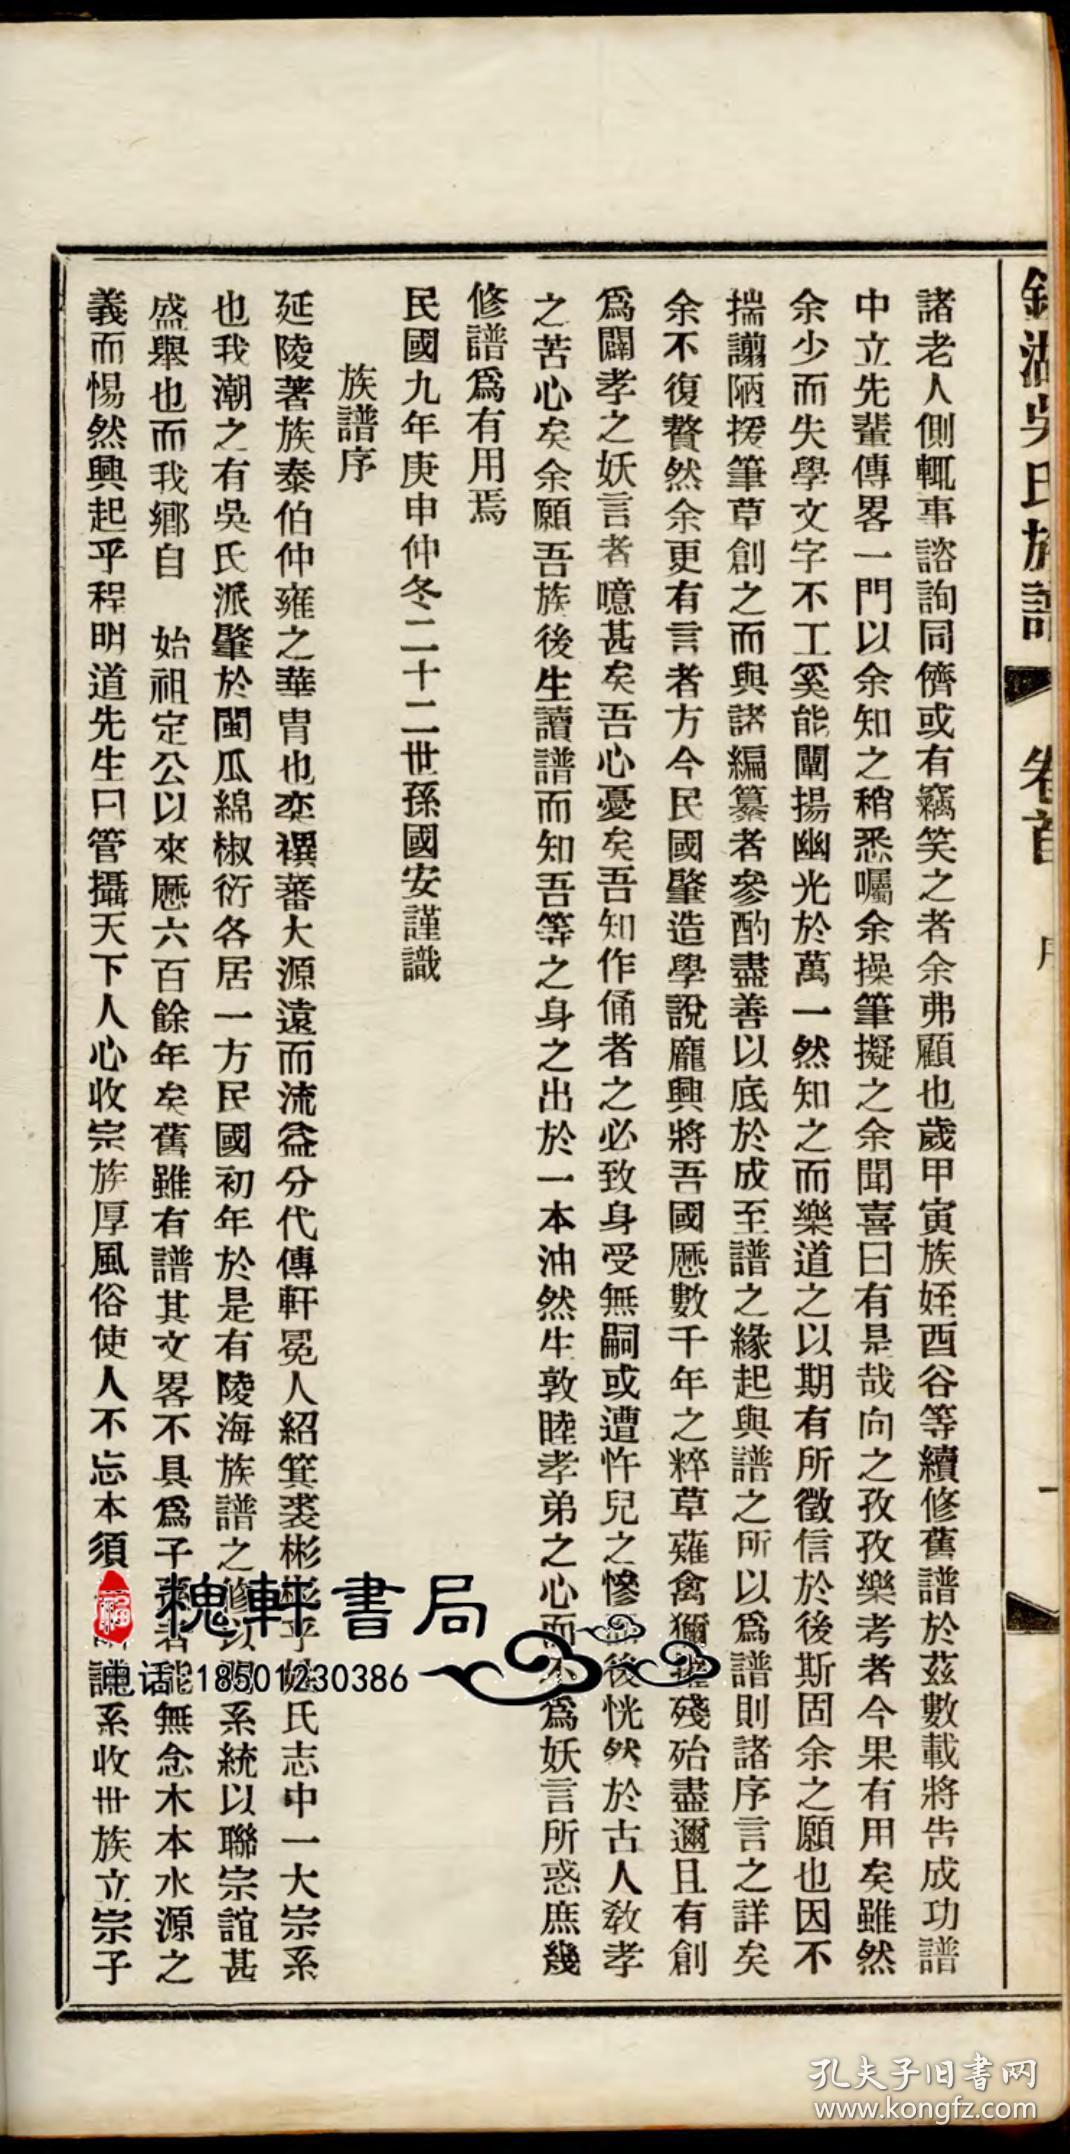 湖吳氏族譜 卷首 序 一
諸老人側輒事諮詢同儕或有竊笑之者余弗顧也歲甲寅族姪酉谷等續修舊譜於茲數載將告成功譜
中立先輩傳畧一門以余知之稍悉囑余操筆擬之余聞喜曰有是哉向之孜孜樂考者今果有用矣雖然
余少而失學文字不工奚能闡揚幽光於萬一然知之而樂道之以期有所徵信於後斯固余之願也因不
揣譾陋援筆草創之而與諸編纂者參酌盡善以底於成至譜之緣起與譜之所以為譜則諸序言之詳矣
余不復贅然余更有言者方今民國肇造學說龐興將吾國歷數千年之粹草薙禽獮摧殘殆盡邇且有創
為闢孝之妖言者噫甚矣吾心憂矣吾知作俑者之必致身受無嗣或遭忤兒之慘後恍然於古人教孝
之苦心矣余願吾族後生讀譜而知吾等之身之出於一本油然生敦睦孝弟之心而不為妖言所惑庶幾
修譜為有用焉
民國九年庚申仲冬二十二世孫國安謹識
族譜序
延陵著族泰伯仲雍之華胄也奕禩蕃大源遠而流益分代傳軒冕人紹箕裘彬彬乎姓氏志中一大宗系
也我潮之有吳氏派肇於閩瓜綿椒衍各居一方民國初年於是有陵海族譜之修以系統以聯宗誼甚
盛舉也而我鄉自 始祖定公以來歷六百餘年矣舊雖有譜其文畧不具為子孫者能無念木本水源之
義而惕然興起乎程明道先生曰管攝天下人心收宗族厚風俗使人不忘本須譜系收世族立宗子
槐軒書局
电话:18501230386
孔夫子旧书网
www.kongfz.com